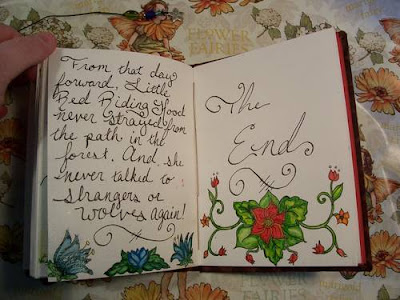 FLOWER
FAIRIES
From that day
forward, Little
Red Riding Hood
never strayed from
the path in the
forest. And, she
never talked to
strangers or
wolves again!
The
End